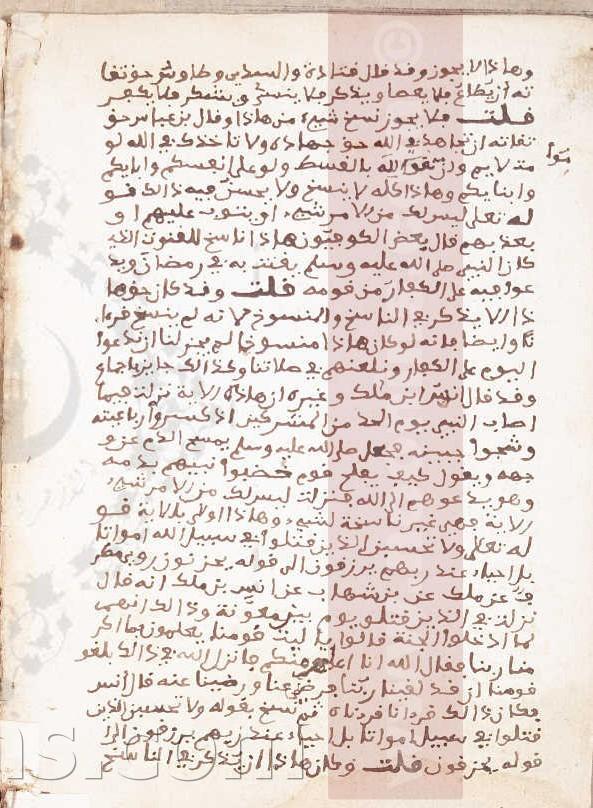 وهاذا لا يجوز وقد قال قتادة والسدي وطاوس حق تقا
ته ان يطاع فلا يعصا ويذكر فلا ينسى ويشكر فلا يكفر
قلت فلا يجوز نسخ شيء من هاذا وقال بن عباس حق
تقاته ان تجاهد في الله حق جهاده ولا تاخذك في الله لو
مة لايم وان تقوموا لله بالقسط ولو على انفسكم وابايكم
وابنايكم وهاذا كله لا ينسخ ولا يحسن فيه ذالك قو
له تعلى ليس لك من الامر شيء او يتوب عليهم او
يعذبهم قال بعض الكوفيون هاذا ناسخ للقنوت الذي
كان النبي صلى الله عليه وسلم يقنت به في رمضان ويد
عوا فيه على الكفار من قومه قلت وقد كان حق ها
ذا الا يذكر في الناسخ والمنسوخ لانه لم ينسخ قرءا
نا وايضا فانه لو كان هاذا منسوخا لم يجز لنا ان ندعوا
اليوم على الكفار ونلعنهم في صلاتنا وكذالك جايز باجماع
وقد قال انس ابن ملك وغيره ان هاذه الاية نزلت فيما
اصاب النبي يوم احد من المشركين اذ كسروا رباعيته
وشجوا جبينه فجعل صلى الله عليه وسلم يمسح الدم عن و
جهه ويقول كيف يفلح قوم خضبوا نبيهم بدمه
وهو يدعوهم الى الله فنزلت ليس لك من الامر شيء
الاية فهي غير ناسخة لشيء وهاذا اولى بالاية قو
له تعلى ولا تحسبن الذين قتلوا في سبيل الله امواتا
بل احياء عند ربهم يرزقون الى قوله يحزنون روى مطر
ف عن ملك عن بن شهاب عن انس بن ملك انه قال
نزلت في الذين قتلوا يوم بير معونة وذالك انهم
لما ادخلوا الجنة قالوا يا ليت قومنا يعلمون بما اكر
منا ربنا فقال الله انا اعلمهم عنكم فانزل الله في ذالك بلغو
قومنا ان قد لقينا ربنا فرضي عنا ورضينا عنه قال انس
فكان ذالك قرءانا قرءناه ثم نسخ بقوله ولا تحسبن الذين
قتلوا في سبيل امواتا بل احياء عند ربهم يرزقون الى
قوله يحزنون قلت وكان هاذا ان يذكر في الناسخ